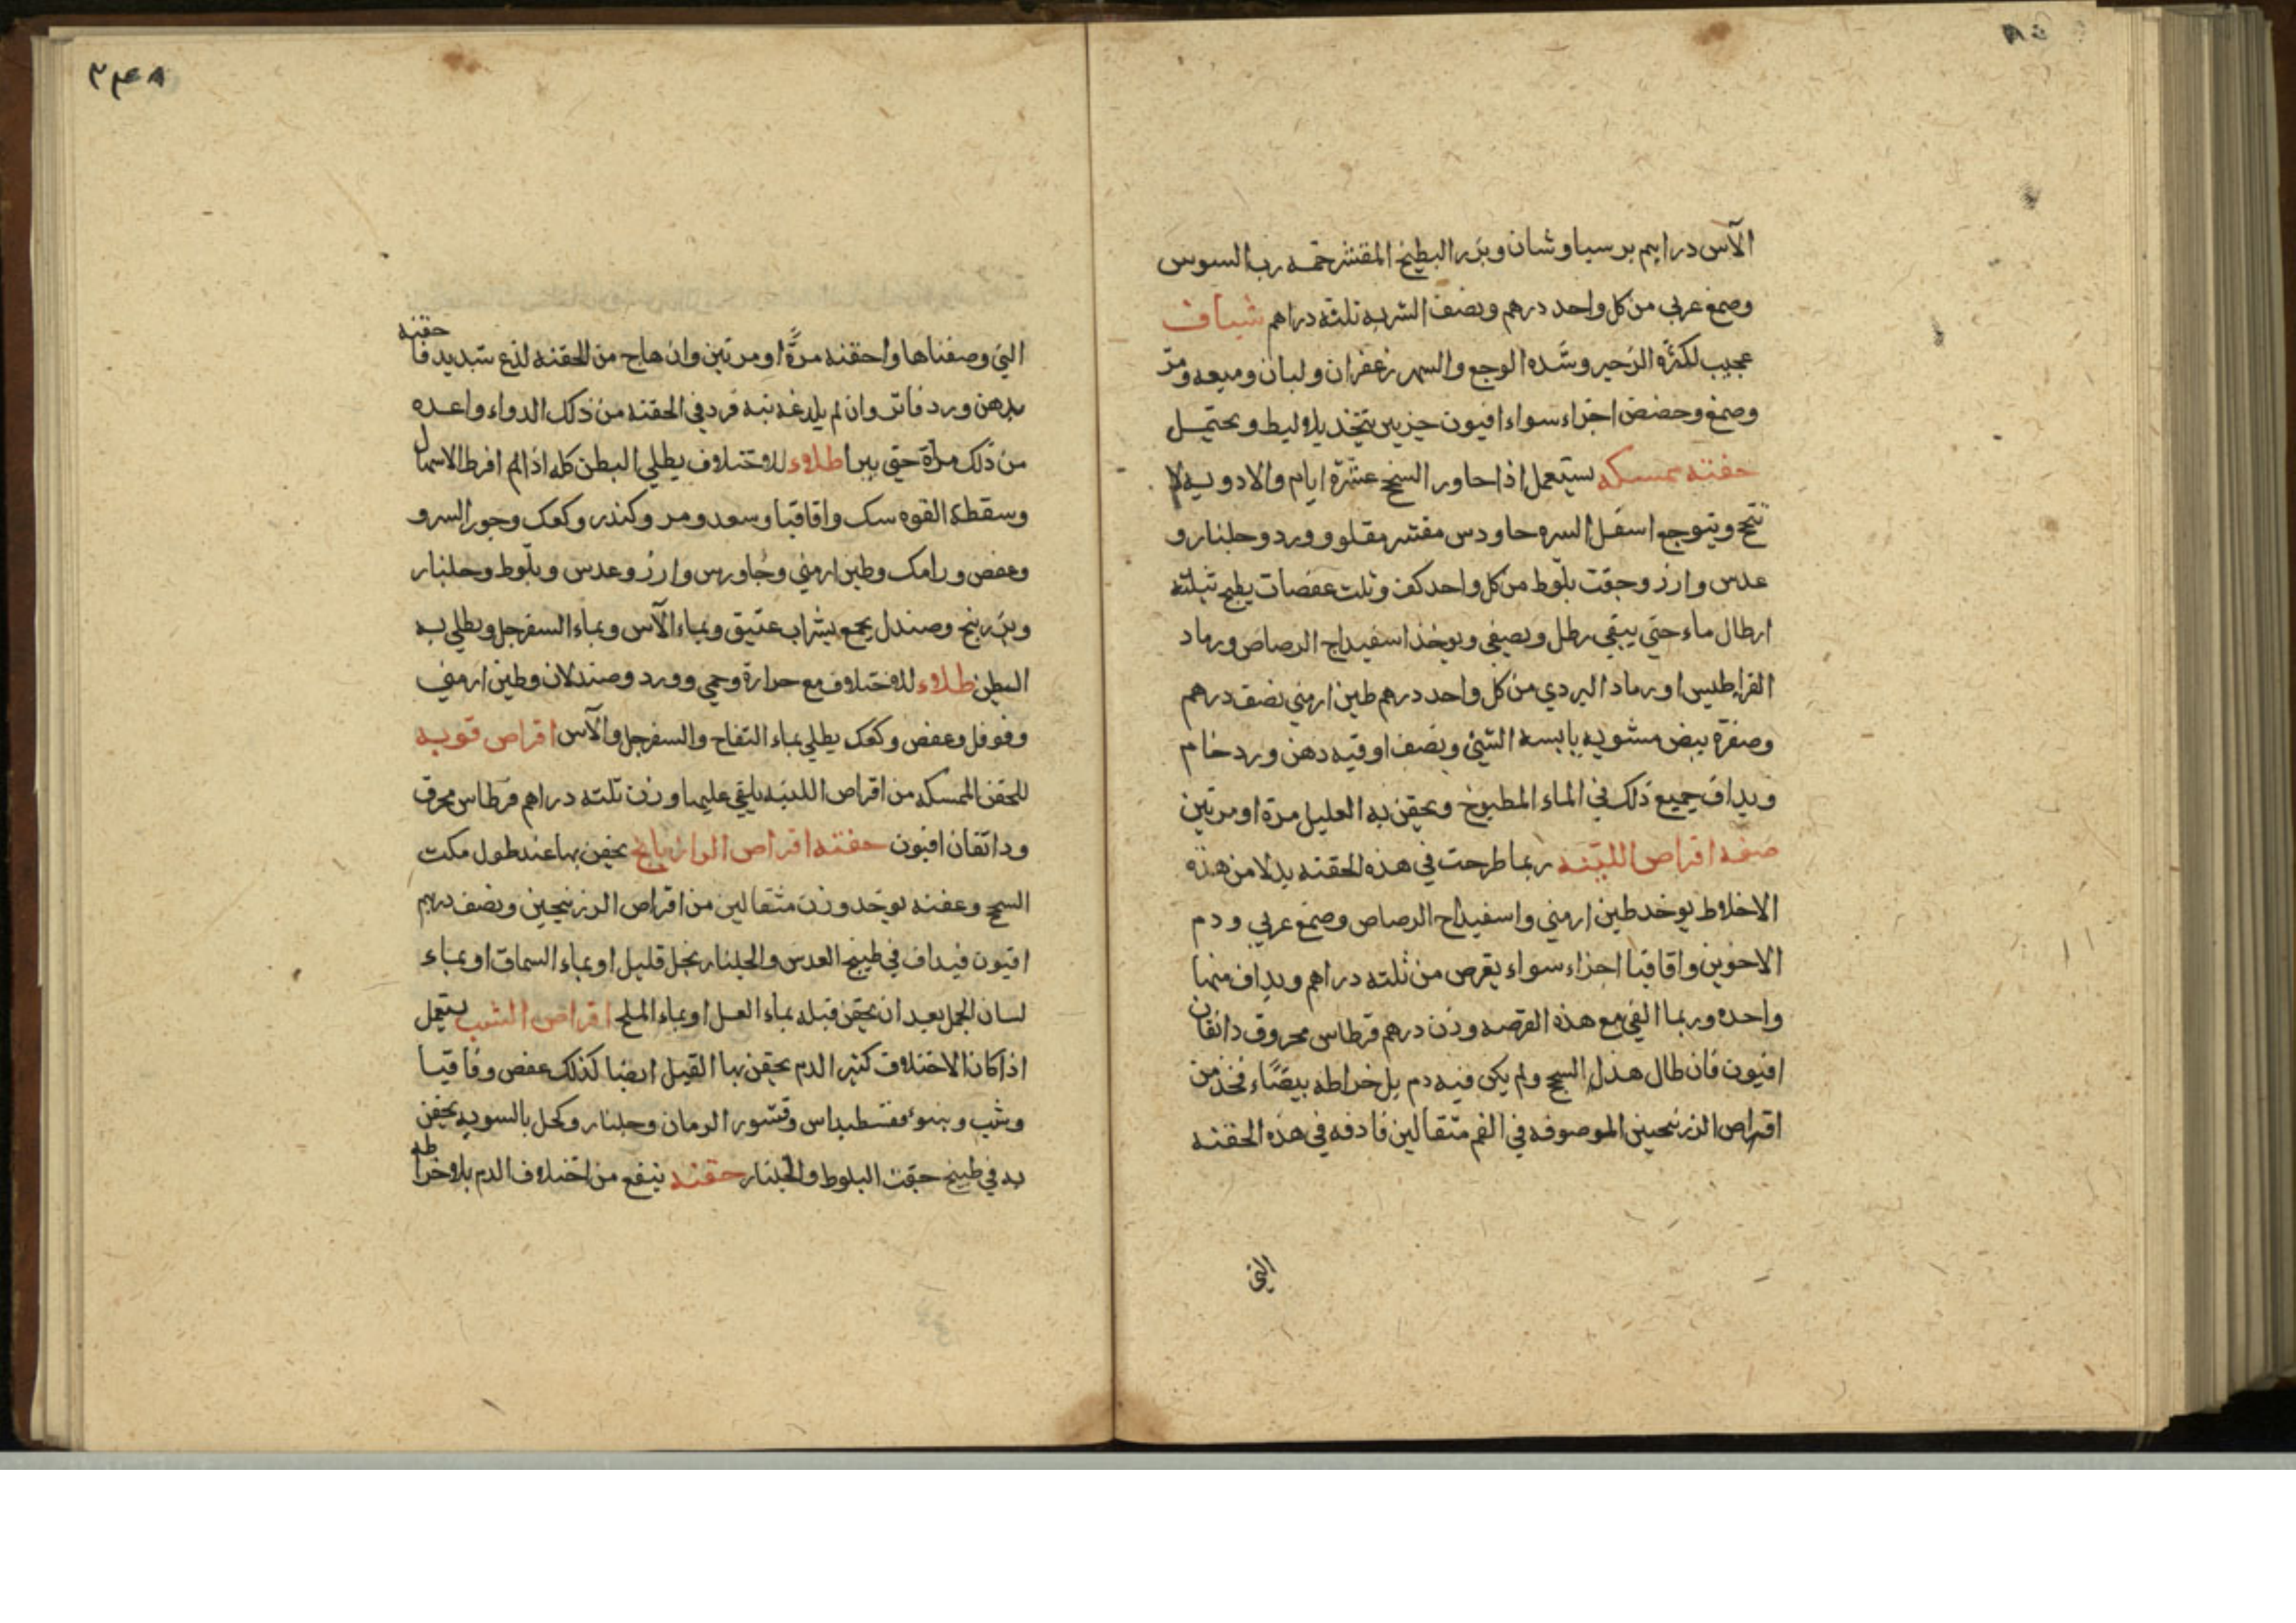 الآس دراهم برسياوشان وبزر البطيخ المقشر خمسه رب السوس
وصمغ عربي من كل واحد درهم ونصف الشربه ثلثه دراهم شياف
عجيب لكثره الزحير وشده الوجع والسهر زعفران ولبان وميعه ومر
وصمغ وحضض اجزاء سواء افيون جزيين يتخذ بلاليط ويحتمل
حقنه ممسكه يستعمل اذا جاور السحج عشرة ايام والادويه لا
تنجح ويتوجع اسفل السره جاورس مقشر مقلو وورد وجلنار و
عدس وارز وجفت بلوط من كل واحد كف وثلث عفصات يطبخ بثلثه
ارطال ماء حتي يبقي رطل ويصفي ويوخذ اسفيداج الرصاص ورماد
القراطيس او رماد البردي من كل واحد درهم طين ارمني نصف درهم
وصفرة بيض مشويه يابسه الشئ ونصف اوقيه دهن ورد خام
ويداف جميع ذلك في الماء المطبوخ ويحقن به العليل مرة او مرتين
صفه اقراص اللينه ربما طرحت في هذه الحقنه بدلا من هذه
الاخلاط يوخد طين ارمني واسفيداج الرصاص وصمغ عربي ودم
الاخوين واقاقيا اجزاء سواء يقرص من ثلثه دراهم ويداف منها
واحده وربما القي مع هذه القرصه وزن درهم قرطاس محروق دانقان
افيون فان طال هذا السحج ولم يكن فيه دم بل خراطه بيضاء فخذ من
اقراص الزرنيجين الموصوفه في الفم مثقالين فادفه في هذه الحقنه
التي
٣٤٨
التي وصفناها واحقنه مرة او مرتين وان هاج من الحقنه لذع شديد فاحقنه
بدهن ورد فاتر وان لم يلدغه نبه فرد في الحقنه من ذلك الدواء واعده
من ذلك مرة حتي يبرا طلاء للاختلاف يطلي البطن كله اذا لم افرط الاسهال
وسقطة القوه سك واقاقيا وسعد ومر وكندر وكعك وجوز السرو
وعفص ورامك وطين ارمني وجاورس وارز وعدس وبلوط وجلنار
وبزر بنج وصندل يجمع بشراب عتيق وبماء الآس وبماء السفرجل ويطلي به
البطن طلاء للاختلاف مع حرارة وحمي وورد وصندلان وطين ارمني
وفوفل وعفص وكعك يطلي بماء التفاح والسفرجل والآس اقراص قويه
للحقن الممسكه من اقراص اللينه يلقي عليها وزن ثلثه دراهم قرطاس محرق
ودانقان افيون حقنه اقراص الرازيانج يحقن بها عند طول مكث
السحج وعفنه يوخد وزن مثقالين من اقراص الزرنيجين ونصف درهم
افيون فيداف في طبيخ العدس والجلنار بخل قليل او بماء السماق او بماء
لسان الجمل بعد ان يحقن قبله بماء العسل او بماء الملح اقراص الشب يستعمل
اذا كان الاختلاف كثير الدم يحقن بها القيل ايضا كذلك عفص وقاقيا
وشب وهيوفقسطيداس وقشور الرمان وجلنار وكحل بالسويه يحقن
به في طبيخ جفت البلوط والجلنار حقنه ينفع من اختلاف الدم بلا خراطه